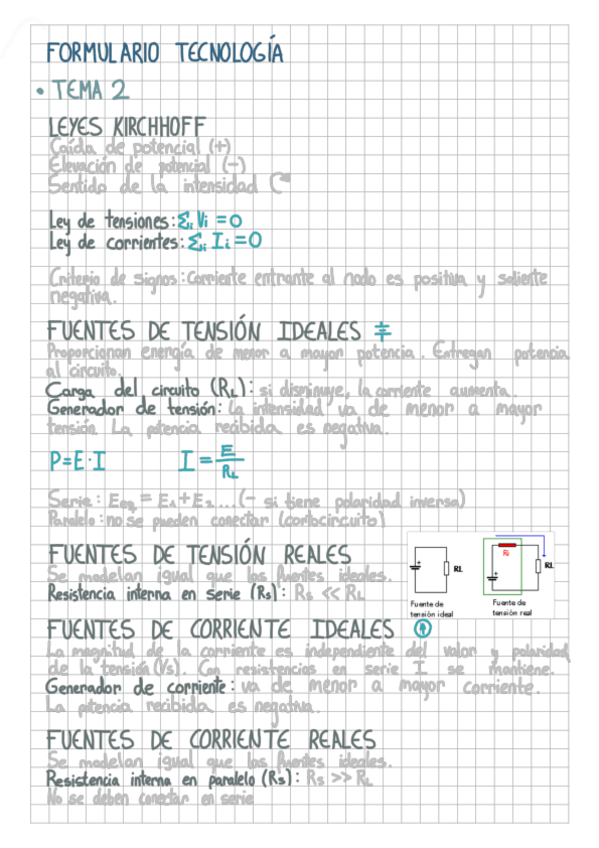 FORMULARIO TECNOLOGÍA
• TEMA 2
LEYES KIRCHHOFF
Caída de potencial (+)
Elevación de potencial (-)
Sentido de la intensidad
Ley de tensiones: Σi Vi = 0
Ley de corrientes: Σi Ii = 0
Criterio de signos: Corriente entrante al nodo es positiva y saliente
negativa.
FUENTES DE TENSIÓN IDEALES
Proporcionan energía de menor a mayor potencia. Entregan potencia
al circuito.
Carga del circuito (RL): si disminuye, la corriente aumenta.
Generador de tensión: La intensidad va de menor a mayor
tensión. La potencia recibida es negativa.
P=E·I I = E/RL
Serie: Eeq = E1+E2 ...(- si tiene polaridad inversa)
Paralelo: no se pueden conectar (cortocircuito)
FUENTES DE TENSIÓN REALES
Se modelan igual que las fuentes ideales.
Resistencia interna en serie (Rs): Rs << RL
RL
Ri
RL
Fuente de
tensión ideal
Fuente de
tensión real
FUENTES DE CORRIENTE IDEALES
La magnitud de la corriente es independiente del valor y polaridad
de la tensión (Vs). Con resistencias en serie I se mantiene.
Generador de corriente: va de menor a mayor corriente.
La potencia recibida es negativa.
FUENTES DE CORRIENTE REALES
Se modelan igual que las fuentes ideales.
Resistencia interna en paralelo (Rs): Rs >> RL
No se deben conectar en serie